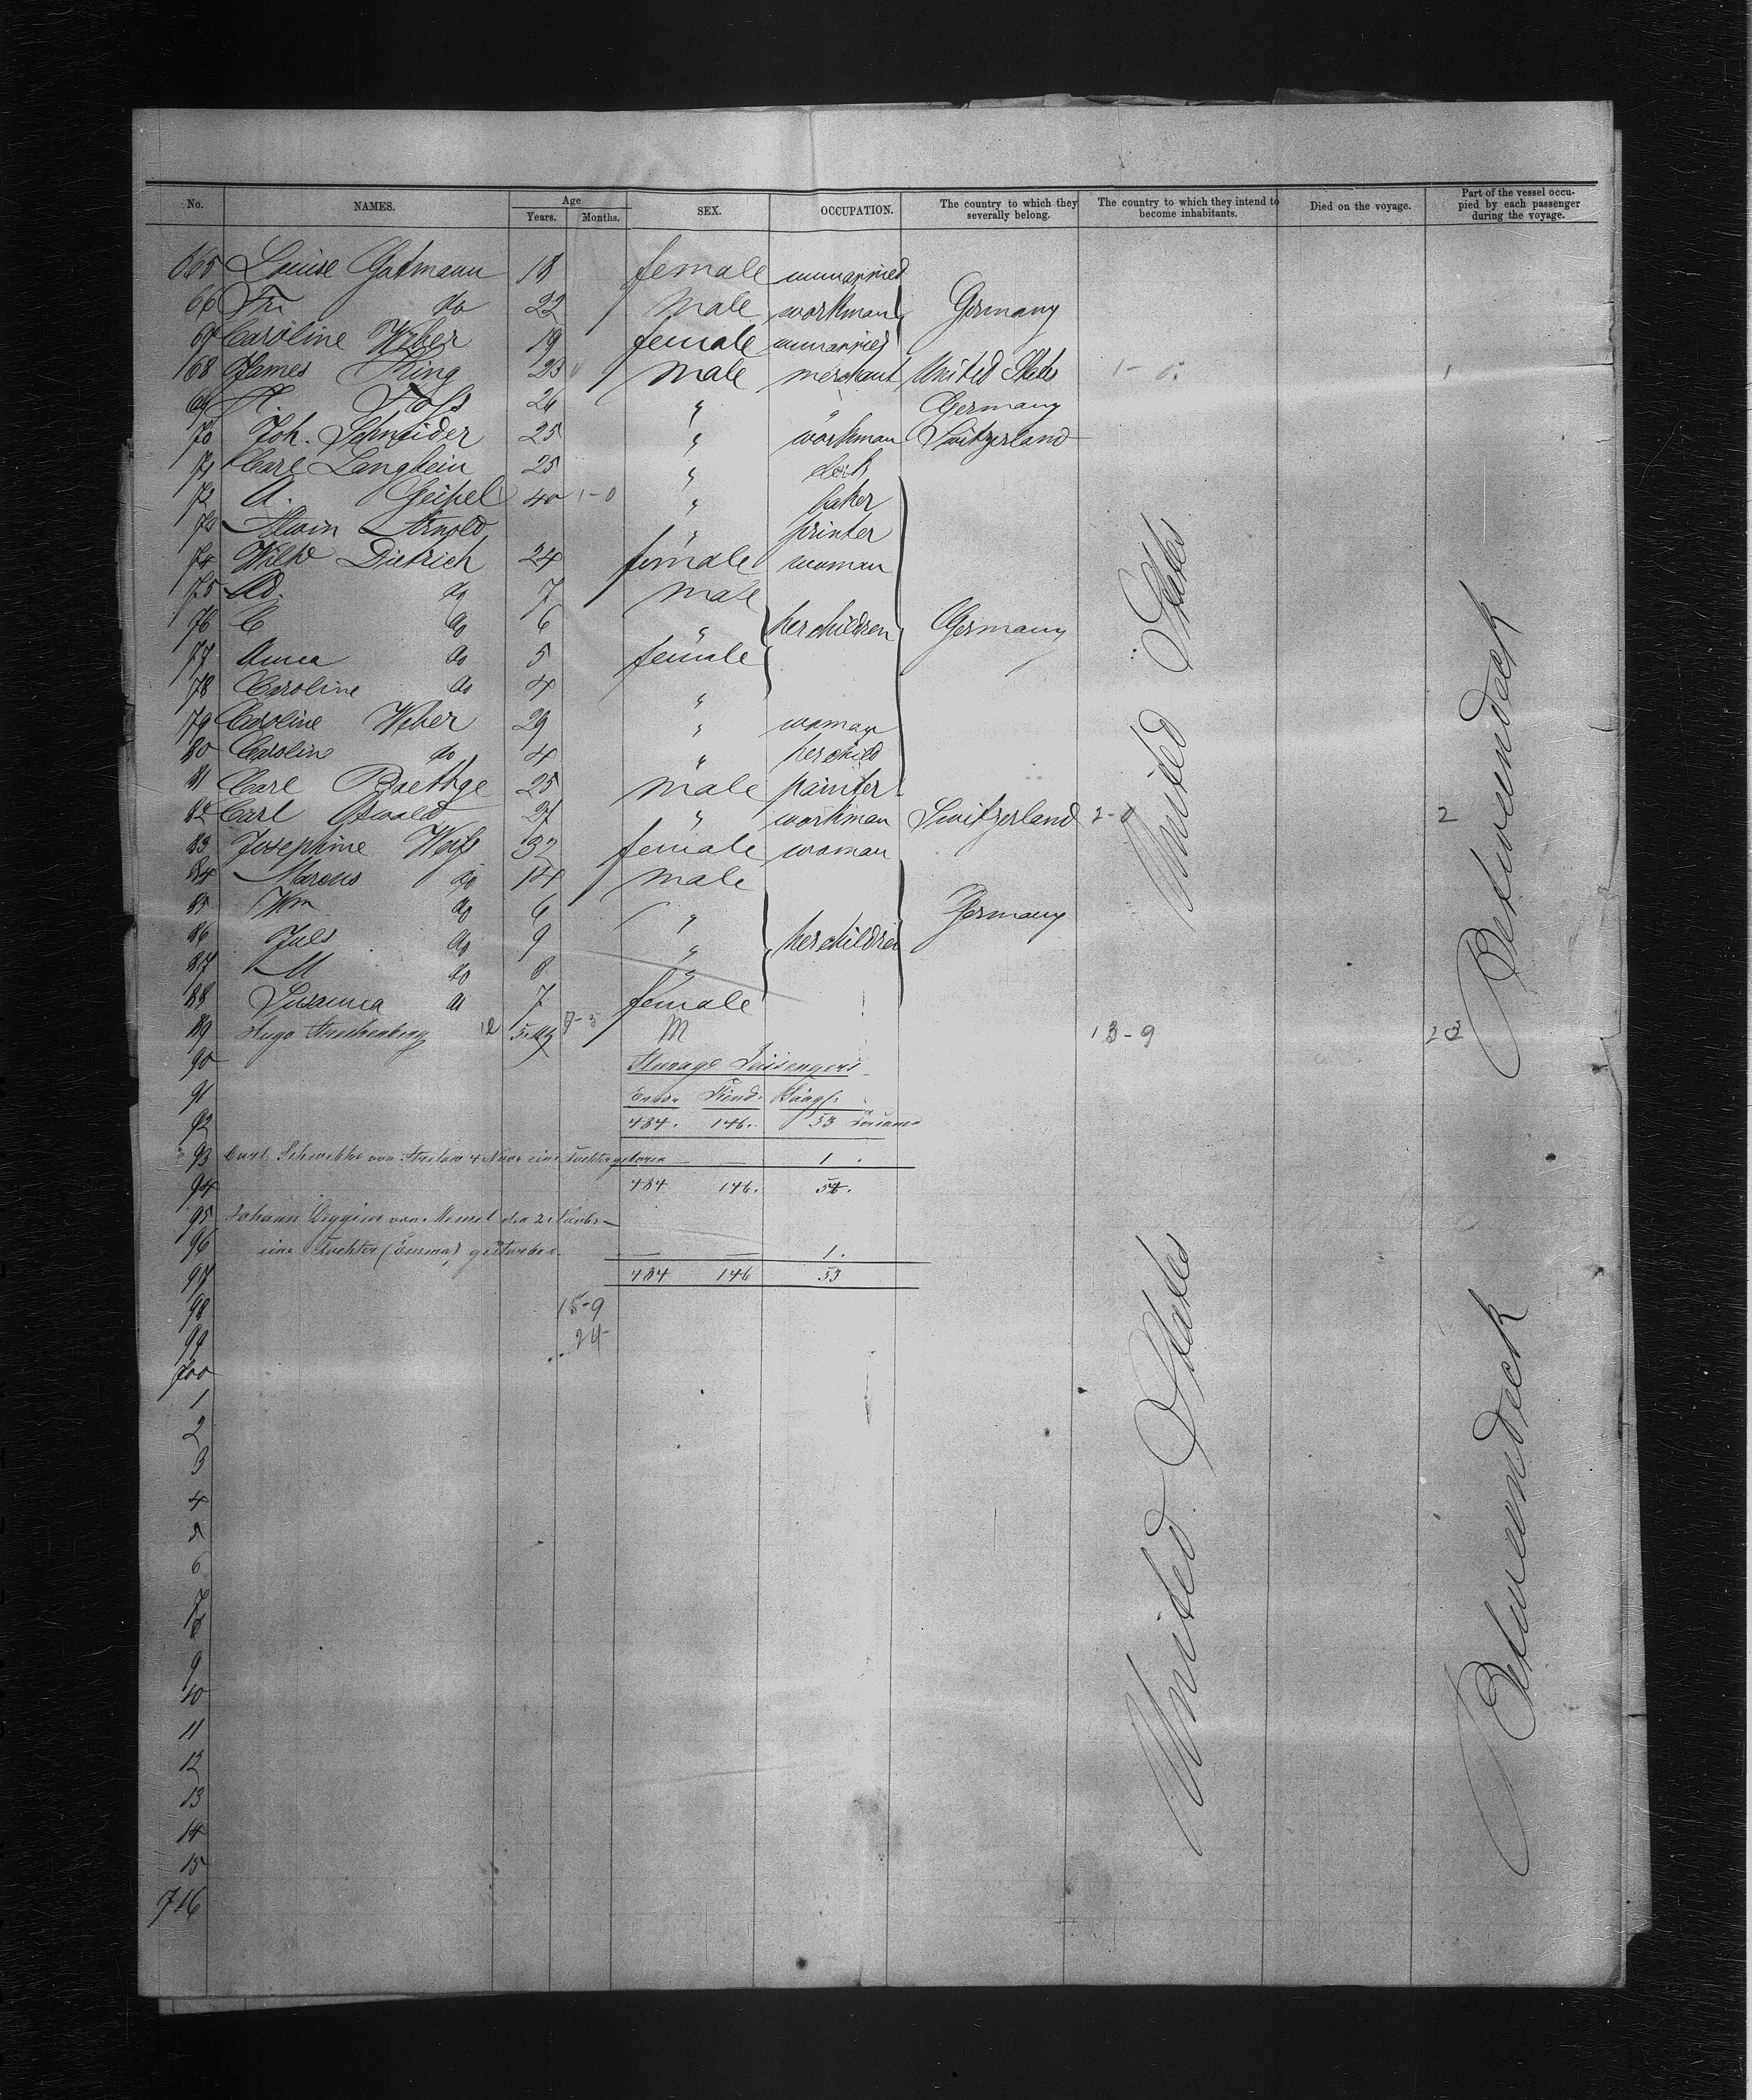 No. NAMES. Age Years. Months. SEX. OCCUPATION. The country to which they severally belong. The country to which they intend to become inhabitants. Died on the voyage. Part of the vessel occupied by each passenger during the voyage.
665 Louise Gutmann 18 female unmarried
66 Fr do 22 male workman Germany
67 Caroline Weber 19 female unmarried
68 James King 23 male merchant United States 1
69 26 " " Germany
70 Joh. Schneider 25 " workman Switzerland
71 Carl Langbein 25 " clerk
72 A. Geipel 40 1-0 " baker
73 Alwin Arnold " printer
74 Wilh Dietrich 24 female woman
75 Ad. do 7 male
76 C do 6 " her children Germany
77 Anna do 5 female
78 Caroline do 4 "
79 Caroline Weber 29 " woman
80 Caroline do 4 " her child
81 Carl Baethge 25 male painter
82 Carl Oswald 27 " workman Switzerland 2-0 2
83 Josephine Weiss 32 female woman
84 Marcus do 14 male
85 Wm do 6 " Germany
86 Juls do 9 " her children
87 M do 8 "
88 Susanna do 7 female
89 Hugo 12 7-5 M 13-9 23
90 Steerage Passengers
91
92 484. 146. 53
93 Carl von 4 eine Tochter geboren — — 1.
94 484 146. 54.
95 Johann von Memel
96 eine Tochter gestorben. — — 1.
97 484 146 53
98 15-9
99 24
700
1
2
3
4
5
6
7
8
9
10
11
12
13
14
15
716
United States
Betweendeck
United States
Betweendeck